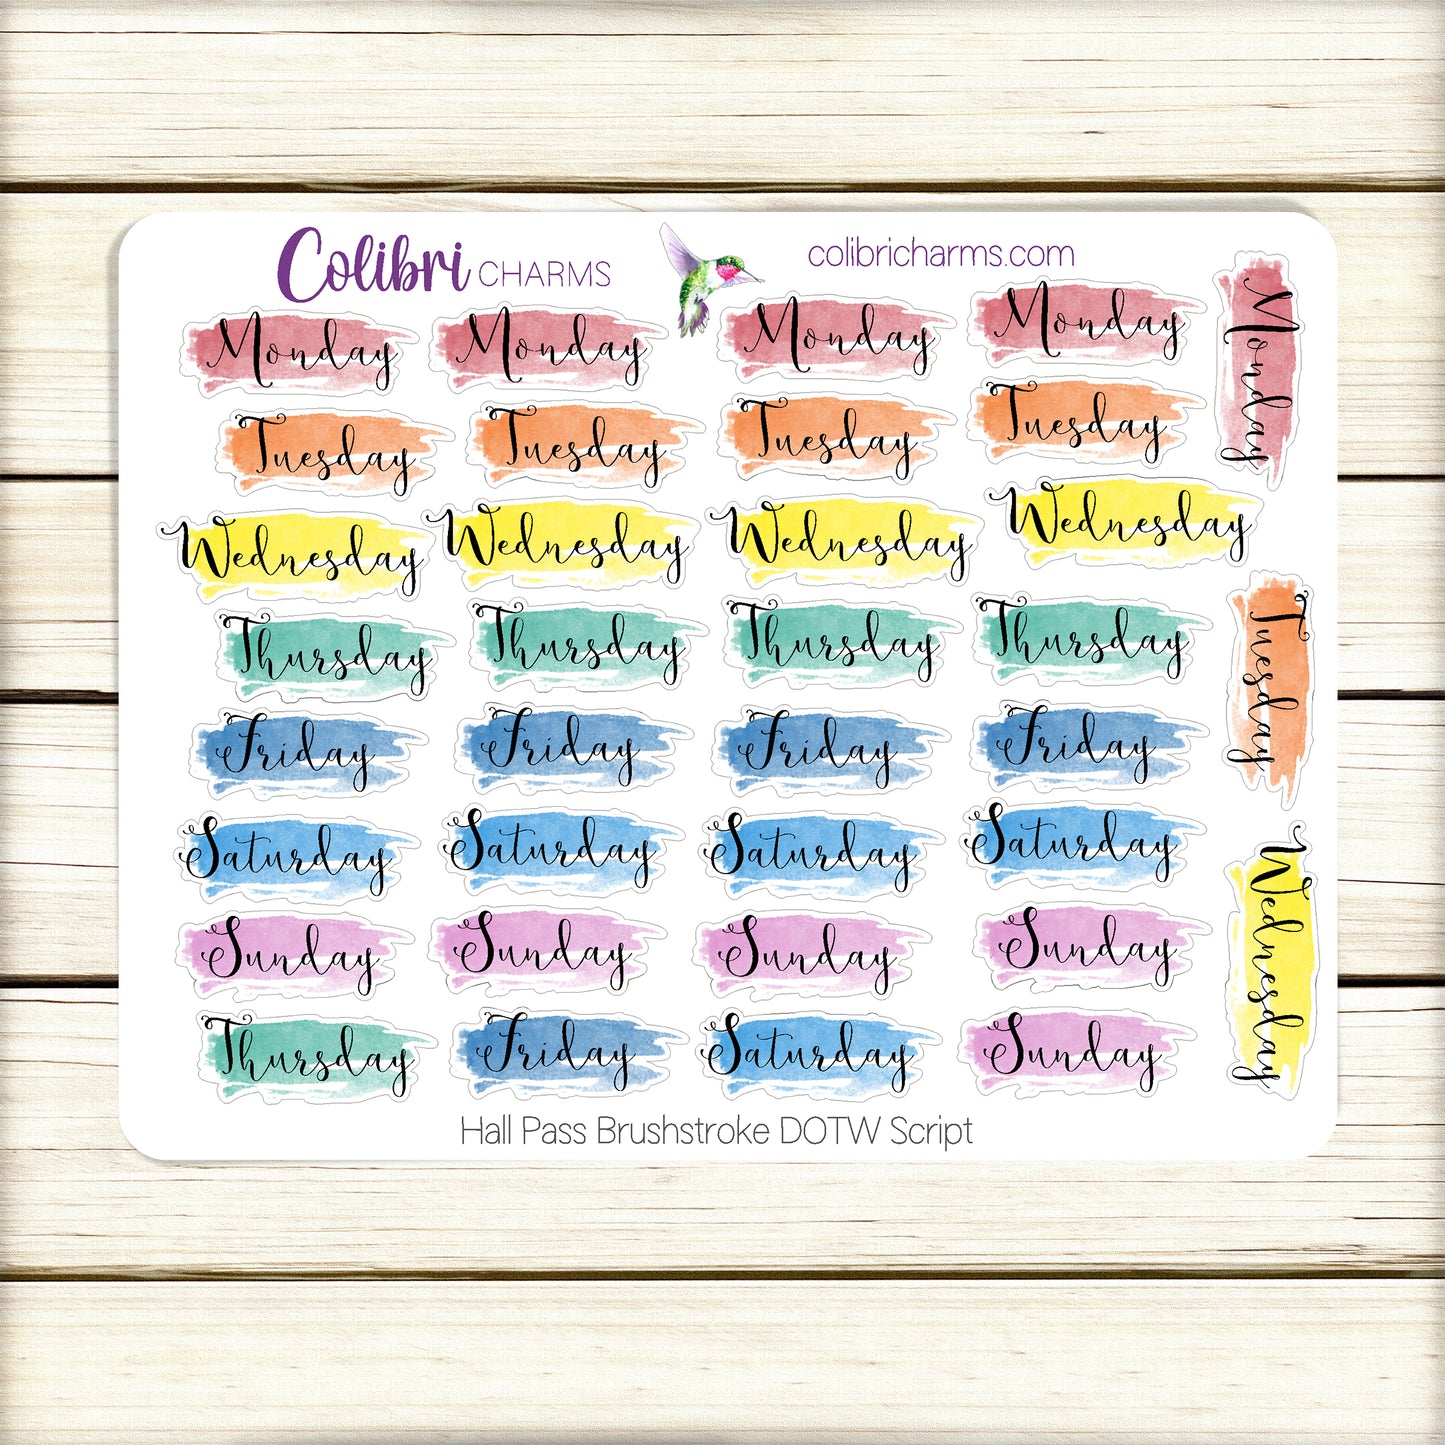 Colibri CHARMS
colibricharms.com
Monday Monday Monday Monday
Monday
Tuesday Tuesday Tuesday Tuesday
Wednesday Wednesday Wednesday Wednesday
Thursday Thursday Thursday Thursday
Tuesday
Friday Friday Friday Friday
Saturday Saturday Saturday Saturday
Wednesday
Sunday Sunday Sunday Sunday
Thursday Friday Saturday Sunday
Hall Pass Brushstroke DOTW Script